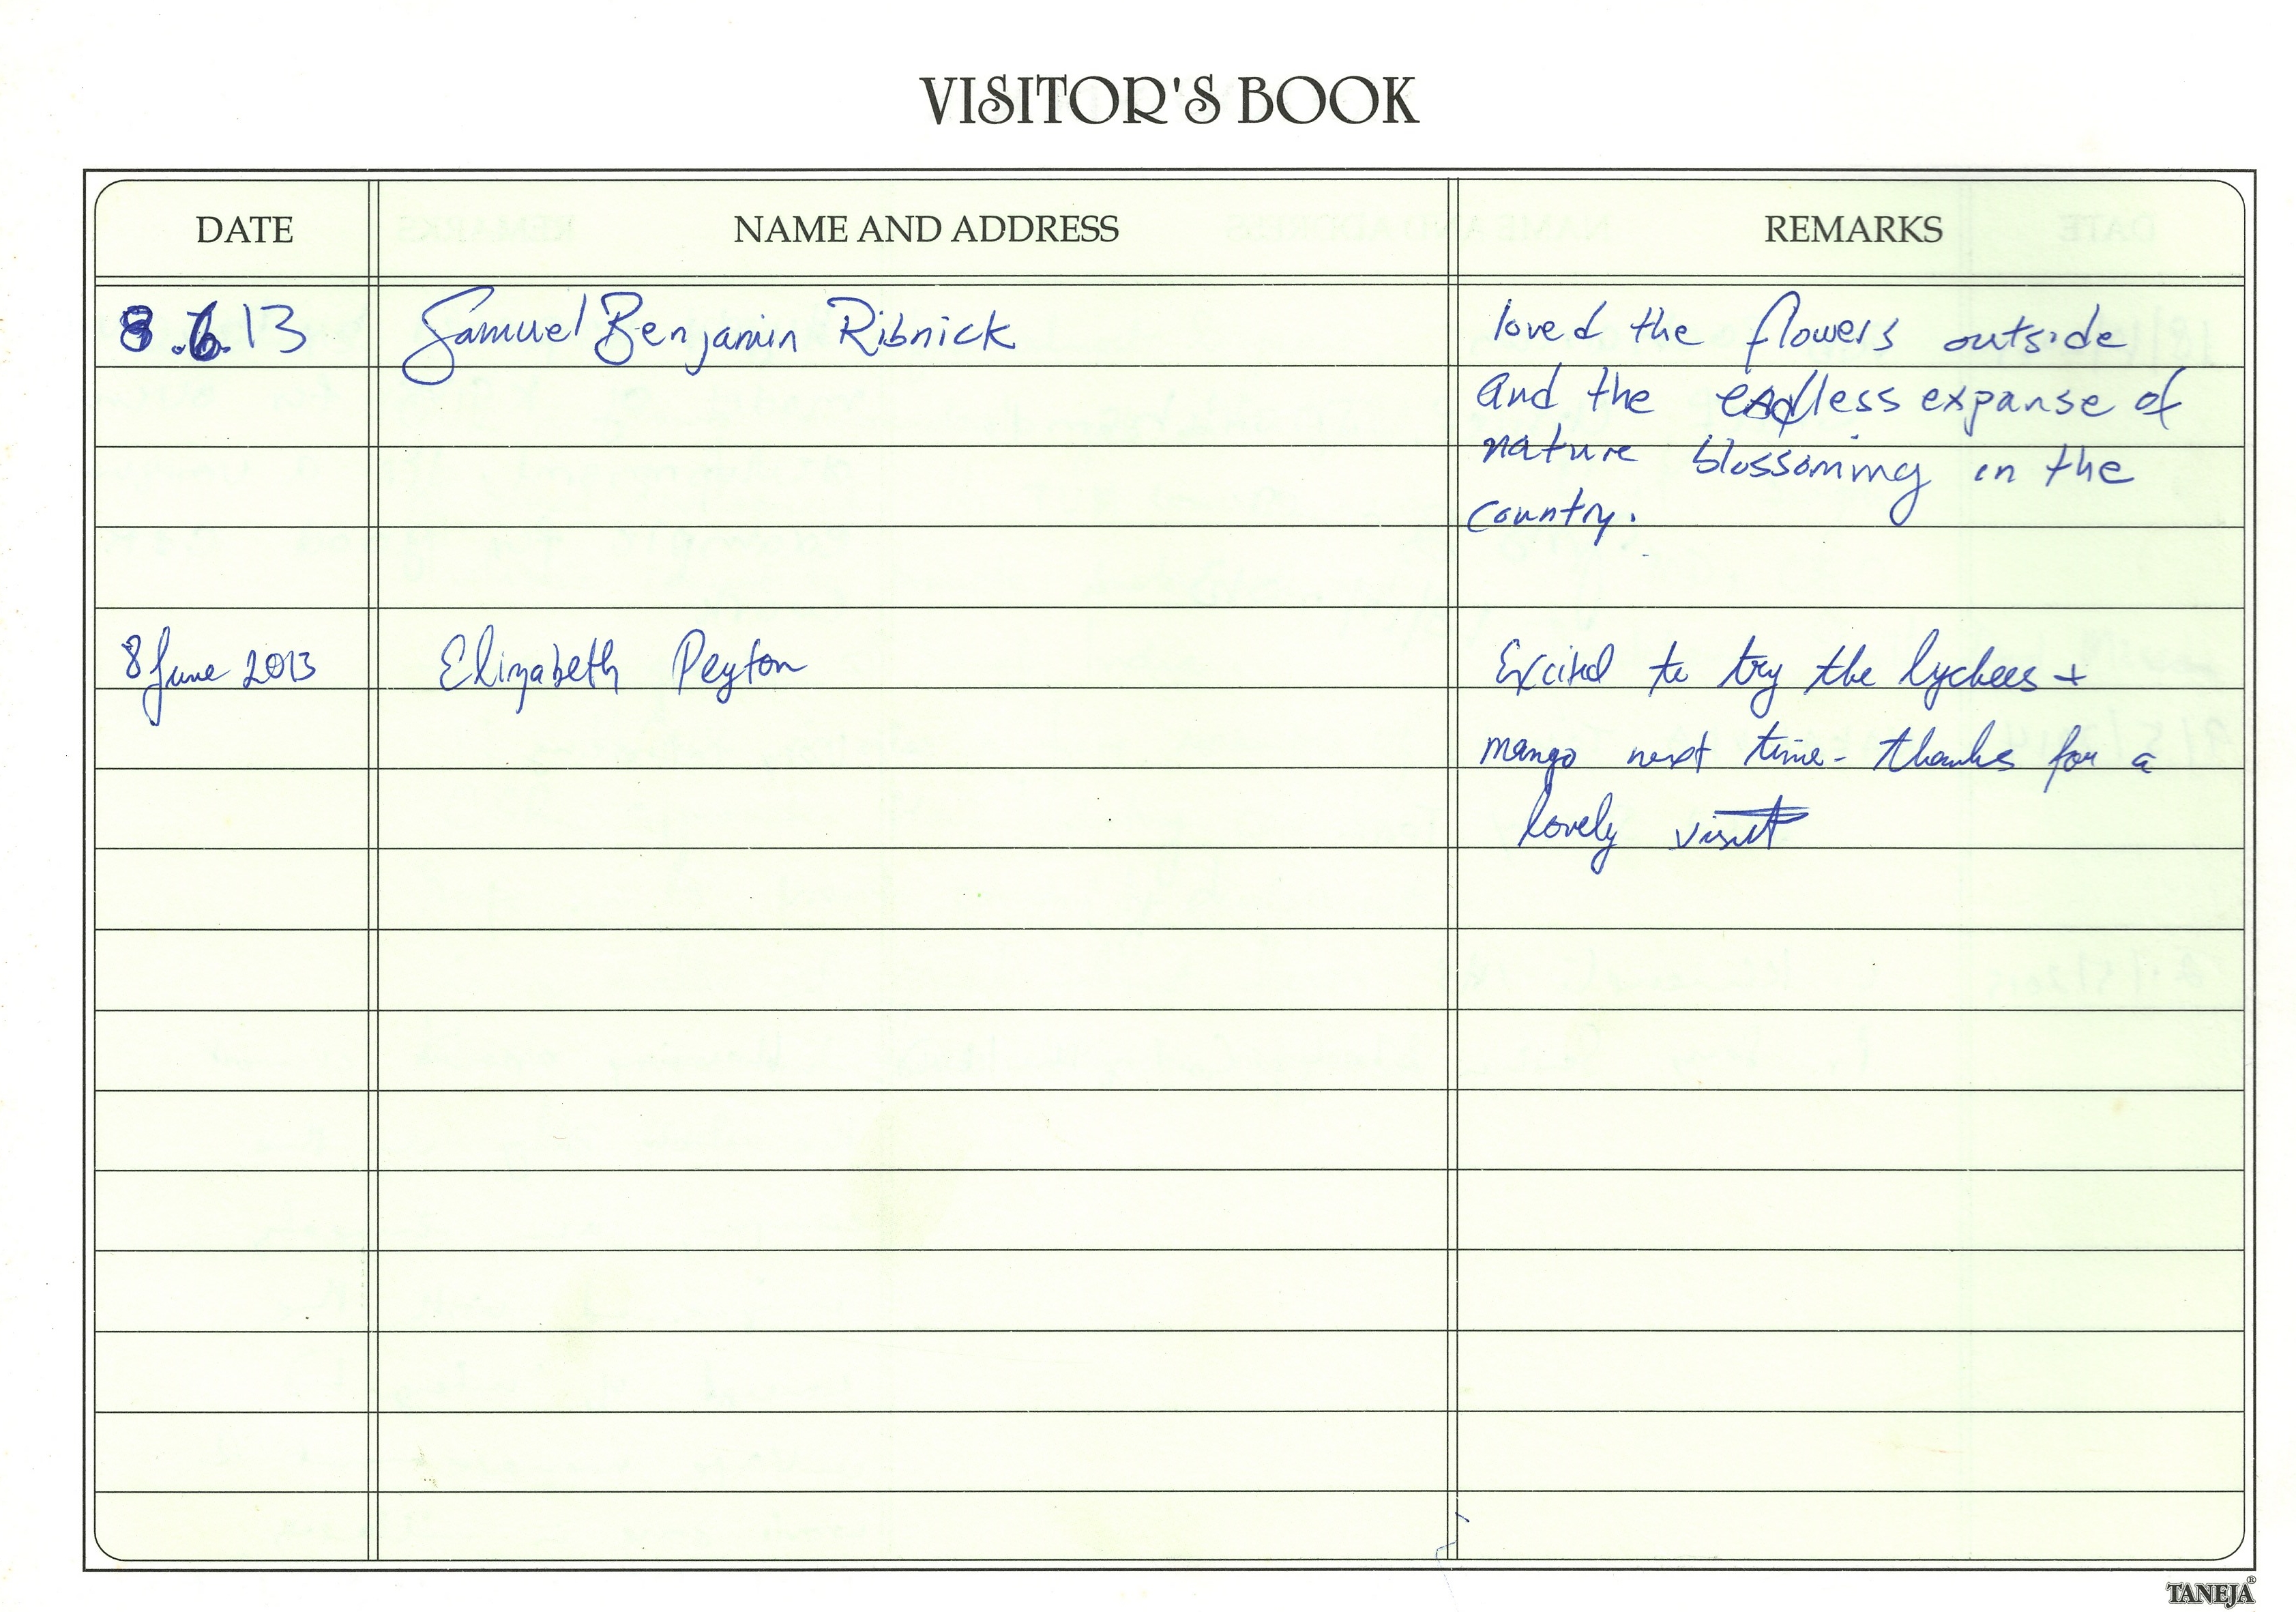 VISITOR'S BOOK
DATE NAME AND ADDRESS REMARKS
8.6.13 Samuel Benjamin Ribnick loved the flowers outside
and the endless expanse of
nature blossoming in the
country.
8 June 2013 Elizabeth Peyton Excited to try the lychees +
mango next time - thanks for a
lovely visit
TANEJA®